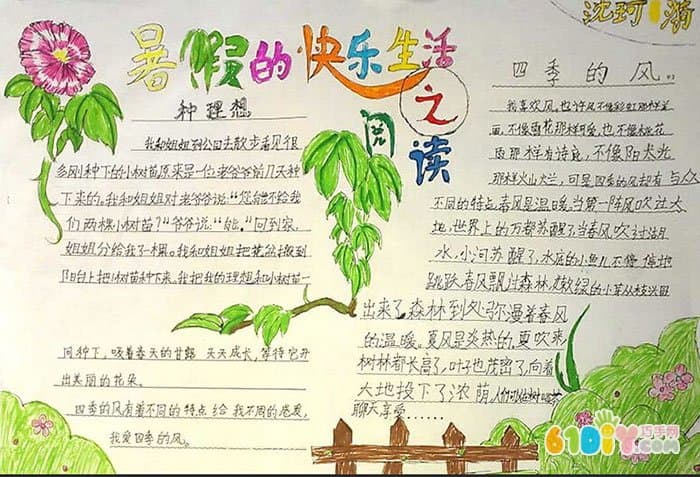 暑假的快乐生活
之
阅读
沈珂
种理想
我和姐姐到公园去散步看见很
多刚种下的小树苗原来是一位老爷爷前几天种
下来的。我和姐姐对老爷爷说:“您能不给我
们两棵小树苗了”爷爷说:“能。”回到家,
姐姐分给我了一棵。我和姐姐把花盆搬到
阳台上把小树苗种下来。我把我的理想和小树苗一
同种下,吸着春天的甘露 天天成长,等待它开
出美丽的花朵。
四季的风有着不同的特点 给我不同的感受,
我爱四季的风。
四季的风
我喜欢风,也许风不像彩虹那样美
丽,不像雪花那样可爱,也不像桃花
雨那样有诗意,不像阳光
那样火山烂,可是四季的风却有与众
不同的特点,春风是温暖,当第一阵风吹过大
地,世界上的万都苏醒了,当春风吹过湖
水,小河苏醒了,水底的小鱼儿不停地
跳跃春风飘过森林,嫩绿的小草从枝
出来了,森林到处弥漫着春风
的温暖。夏风是炎热的,夏吹来
树林都长高了,叶子也茂密了,向着
大地投下了浓荫,人们可以在树
聊天享受……
61DIY.com巧手网